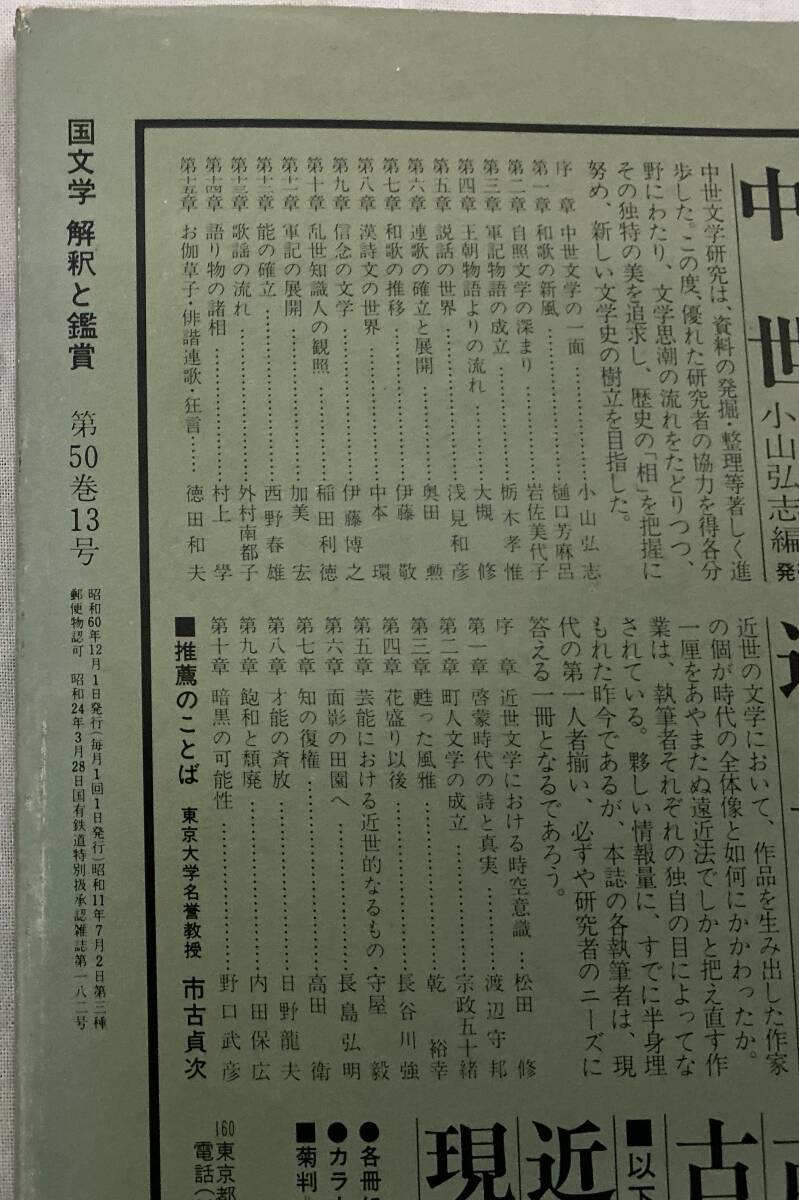 中世
小山弘志編
発
中世文学研究は、資料の発掘・整理等著しく進
歩した。この度、優れた研究者の協力を得各分
野にわたり、文学思潮の流れをたどりつつ、
その独特の美を追求し、歴史の「相」を把握に
努め、新しい文学史の樹立を目指した。
序章 中世文学の一面……小山弘志
第一章 和歌の新風……樋口芳麻呂
第二章 自照文学の深まり……岩佐美代子
第三章 軍記物語の成立……栃木孝惟
第四章 王朝物語よりの流れ……大槻修
第五章 説話の世界……浅見和彦
第六章 連歌の確立と展開……奥田勲
第七章 和歌の推移……伊藤敬
第八章 漢詩文の世界……中本環
第九章 信念の文学……伊藤博之
第十章 乱世知識人の観照……稲田利徳
第十一章 軍記の展開……加美宏
第十二章 能の確立……西野春雄
第十三章 歌謡の流れ……外村南都子
第十四章 語り物の諸相……村上學
第十五章 お伽草子・俳諧連歌・狂言……徳田和夫
近世の文学において、作品を生み出した作家
の個が時代の全体像と如何にかかわったか。
一厘をあやまたぬ遠近法でしかと把え直す作
業は、執筆者それぞれの独自の目によってな
されている。夥しい情報量に、すでに半身埋
もれた昨今であるが、本誌の各執筆者は、現
代の第一人者揃い、必ずや研究者のニーズに
答える一冊となるであろう。
序章 近世文学における時空意識……松田修
第一章 啓蒙時代の詩と真実……渡辺守邦
第二章 町人文学の成立……宗政五十緒
第三章 甦った風雅……乾裕幸
第四章 花盛り以後……長谷川強
第五章 芸能における近世的なるもの・守屋毅
第六章 面影の田園へ……長島弘明
第七章 知の復権……高田衛
第八章 才能の斉放……日野龍夫
第九章 飽和と頽廃……内田保広
第十章 暗黒の可能性……野口武彦
■推薦のことば 東京大学名誉教授 市古貞次
古
■以下
近
現
●各冊
●カラ
■菊判
160東京都
電話(
国文学 解釈と鑑賞 第50巻13号
昭和60年12月1日発行(毎月1回1日発行)昭和11年7月2日第三種
郵便物認可 昭和24年3月28日国有鉄道特別扱承認雑誌第一八二号